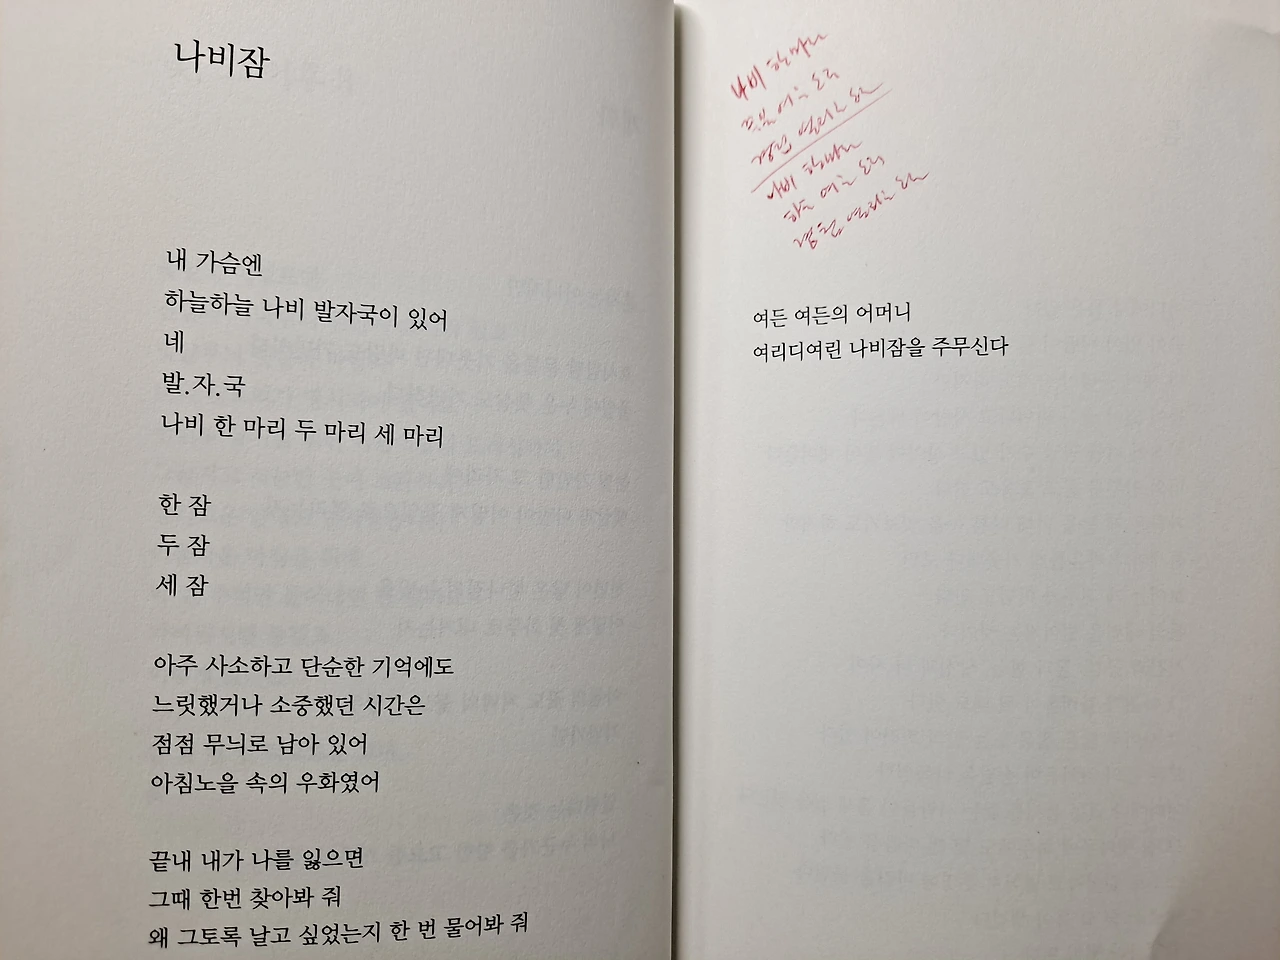 나비잠
내 가슴엔
하늘하늘 나비 발자국이 있어
네
발.자.국
나비 한 마리 두 마리 세 마리
한 잠
두 잠
세 잠
아주 사소하고 단순한 기억에도
느릿했거나 소중했던 시간은
점점 무늬로 남아 있어
아침노을 속의 우화였어
끝내 내가 나를 잃으면
그때 한번 찾아봐 줘
왜 그토록 날고 싶었는지 한 번 물어봐 줘
나비 한마리
나비 한마리
여든 여든의 어머니
여리디여린 나비잠을 주무신다